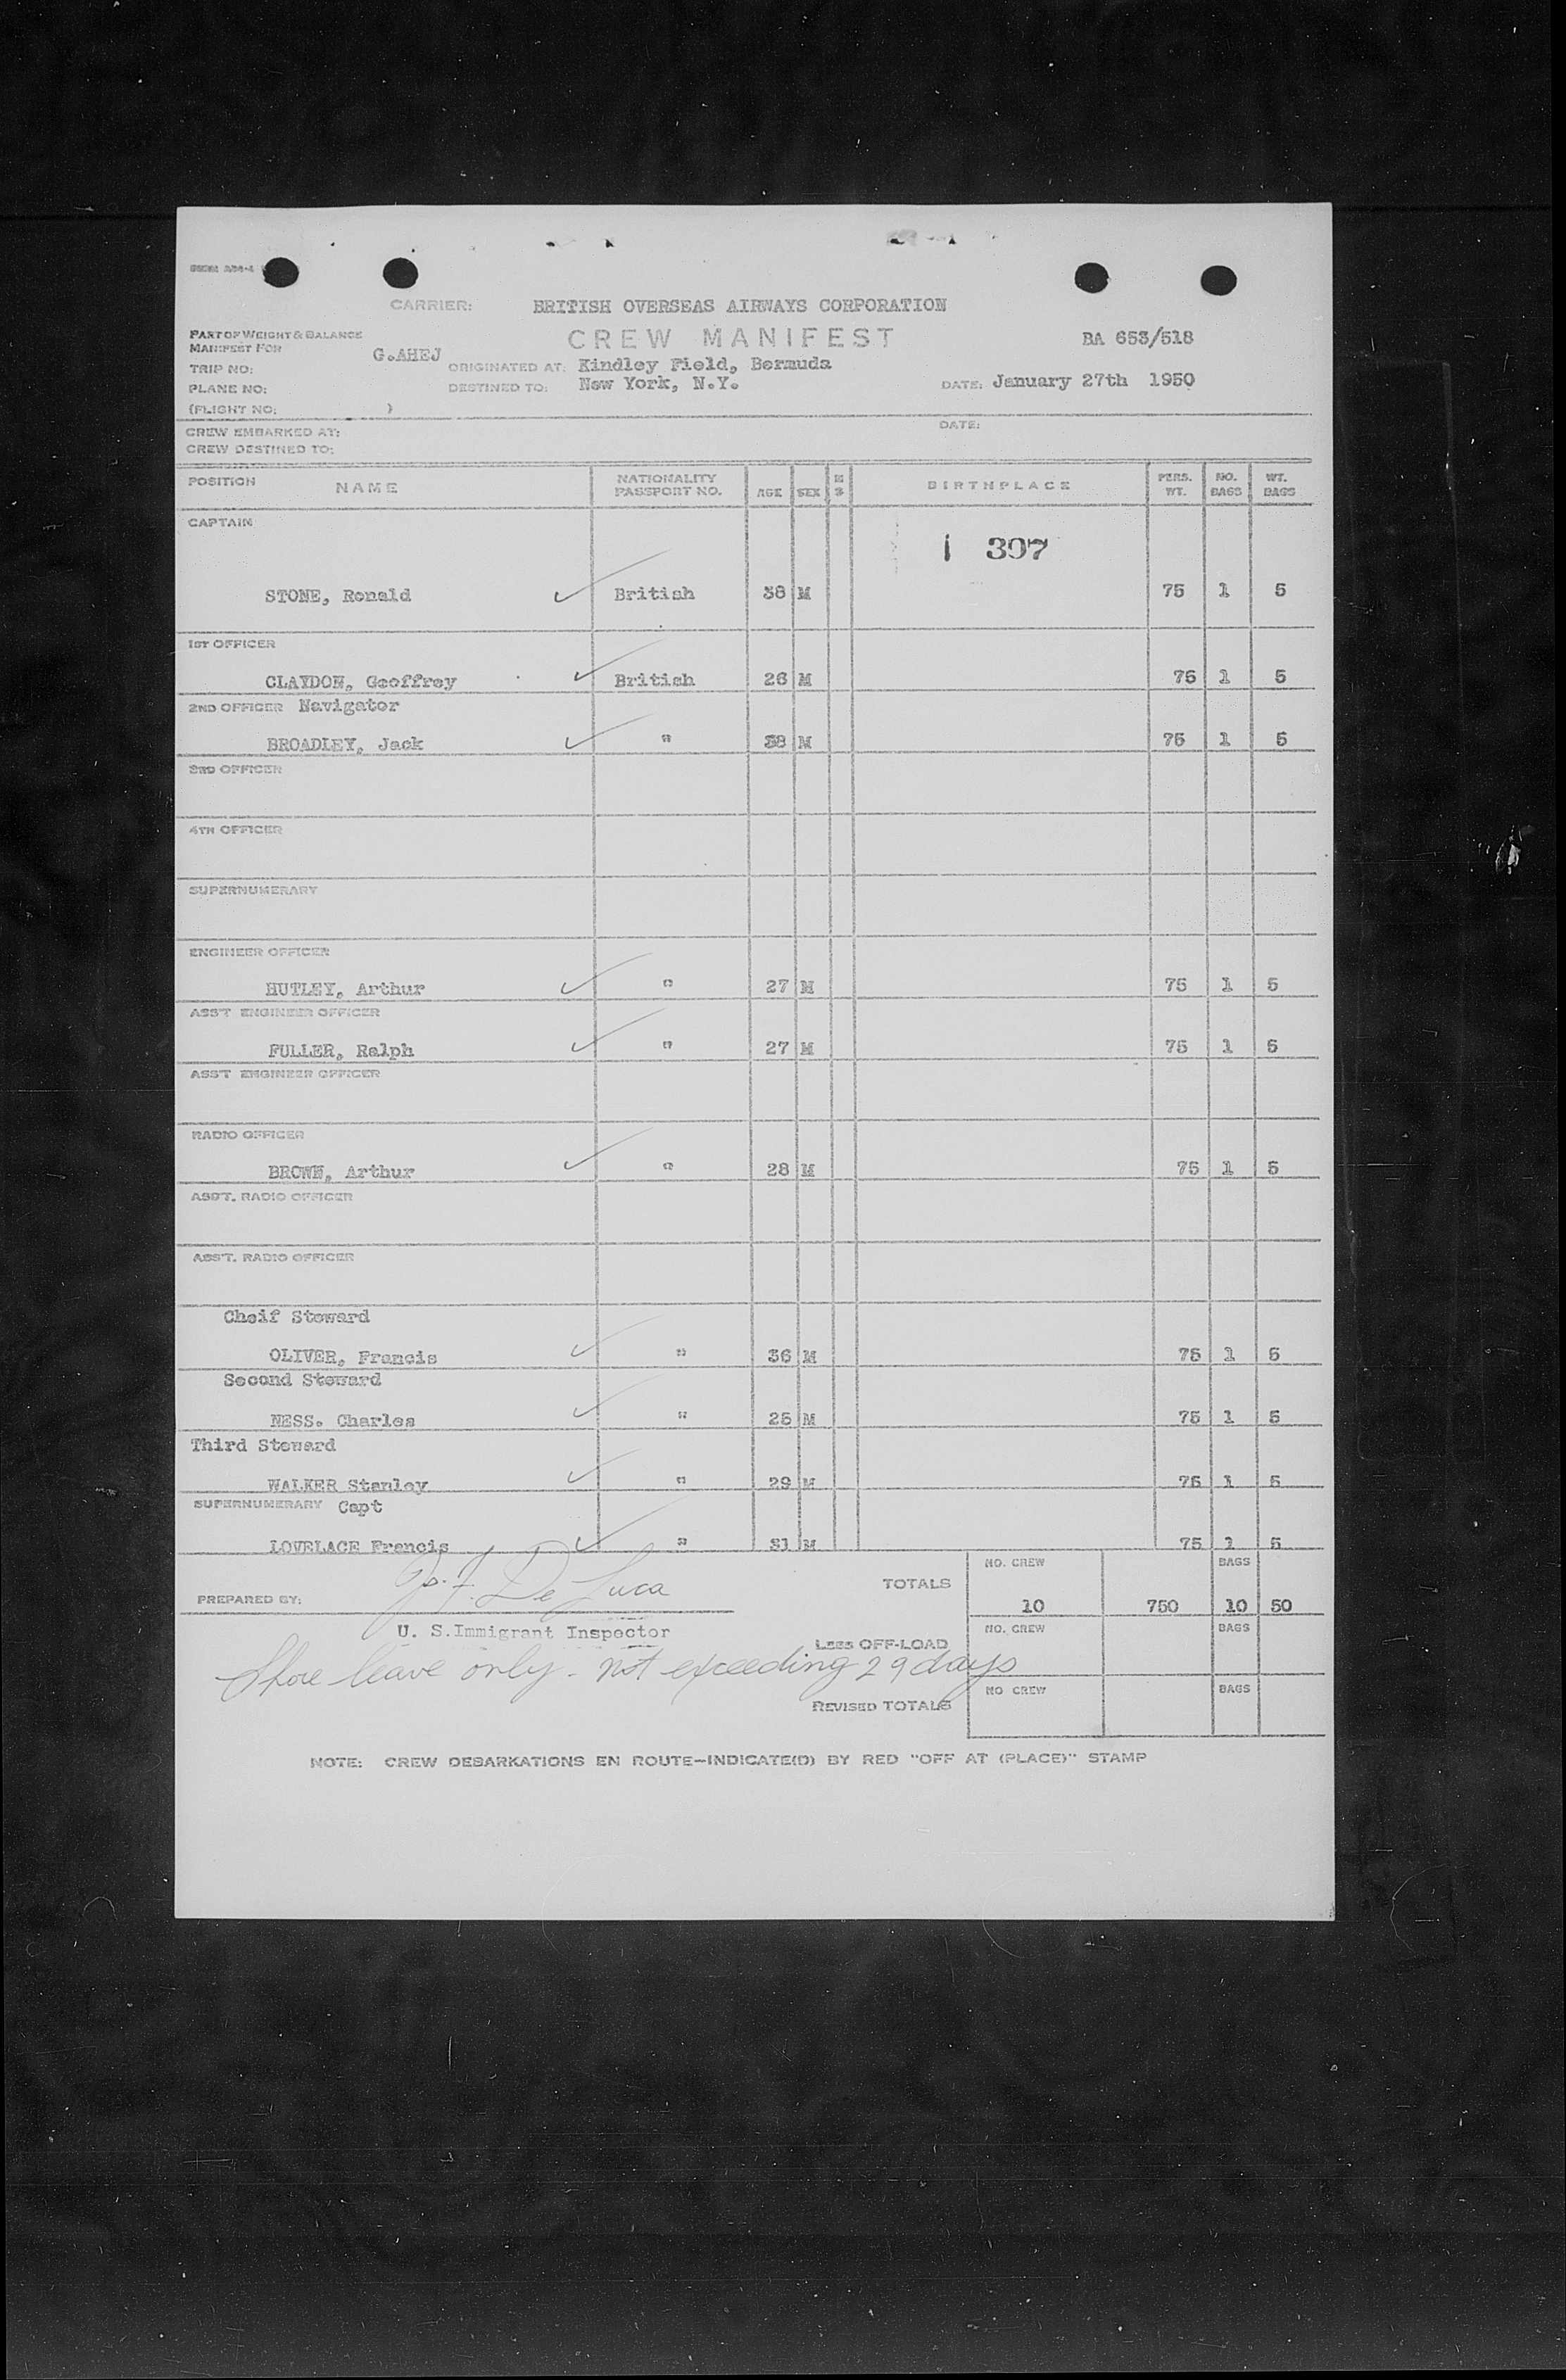 CARRIER: BRITISH OVERSEAS AIRWAYS CORPORATION
PART OF WEIGHT & BALANCE
MANIFEST FOR
CREW MANIFEST
BA 653/518
G.AHEJ
TRIP NO:
ORIGINATED AT: Kindley Field, Bermuda
PLANE NO:
DESTINED TO: New York, N.Y.
DATE: January 27th 1950
(FLIGHT NO: )
CREW EMBARKED AT:
DATE:
CREW DESTINED TO:
POSITION NAME NATIONALITY PASSPORT NO. AGE SEX M S BIRTHPLACE PERS. WT. NO. BAGS WT. BAGS
CAPTAIN
1 397
STONE, Ronald British 38 M 75 1 5
1ST OFFICER
CLAYDON, Geoffrey British 26 M 75 1 5
2ND OFFICER Navigator
BROADLEY, Jack " 38 M 75 1 5
3RD OFFICER
4TH OFFICER
SUPERNUMERARY
ENGINEER OFFICER
HUTLEY, Arthur " 27 M 75 1 5
ASS'T ENGINEER OFFICER
FULLER, Ralph " 27 M 75 1 5
ASS'T ENGINEER OFFICER
RADIO OFFICER
BROWN, Arthur " 28 M 75 1 5
ASS'T. RADIO OFFICER
ASS'T. RADIO OFFICER
Cheif Steward
OLIVER, Francis " 36 M 75 1 5
Second Steward
NESS. Charles " 25 M 75 1 5
Third Steward
WALKER Stanley " 29 M 75 1 5
SUPERNUMERARY Capt
LOVELACE Francis " 31 M 75 1 5
NO. CREW BAGS
De Luca
TOTALS
PREPARED BY:
10 750 10 50
U. S. Immigrant Inspector
NO. CREW BAGS
LESS OFF-LOAD
Shore leave only - not exceeding 29 days
NO CREW BAGS
REVISED TOTALS
NOTE: CREW DEBARKATIONS EN ROUTE—INDICATE(D) BY RED "OFF AT (PLACE)" STAMP